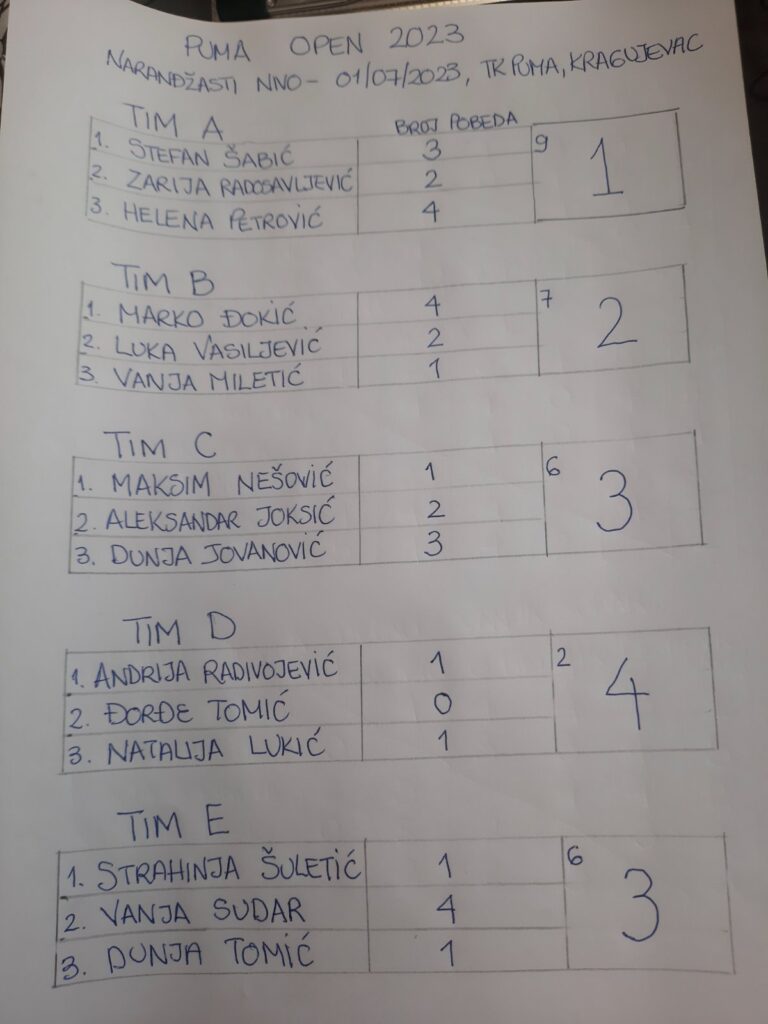 PUMA OPEN 2023
NARANDŽASTI NNO - 01/07/2023, TK PUMA, KRAGUJEVAC
TIM A BROJ POBEDA
1. STEFAN ŠABIĆ 3 9 1
2. ZARIJA RADOSAVLJEVIĆ 2
3. HELENA PETROVIĆ 4
TIM B
1. MARKO ĐOKIĆ 4 7 2
2. LUKA VASILJEVIĆ 2
3. VANJA MILETIĆ 1
TIM C
1. MAKSIM NEŠOVIĆ 1 6 3
2. ALEKSANDAR JOKSIĆ 2
3. DUNJA JOVANOVIĆ 3
TIM D
1. ANDRIJA RADIVOJEVIĆ 1 2 4
2. ĐORĐE TOMIĆ 0
3. NATALIJA LUKIĆ 1
TIM E
1. STRAHINJA ŠULETIĆ 1 6 3
2. VANJA SUDAR 4
3. DUNJA TOMIĆ 1